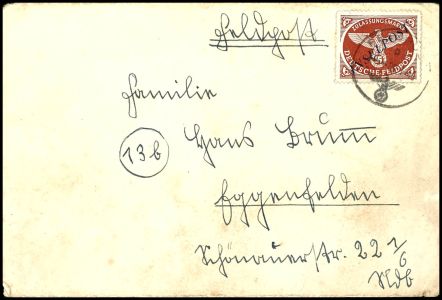 Feldpost
ZULASSUNGSMARKE
DEUTSCHE FELDPOST
Familie
13b
Hans Brumm
Eggenfelden
Schönauerstr. 22 1/6
Ndb